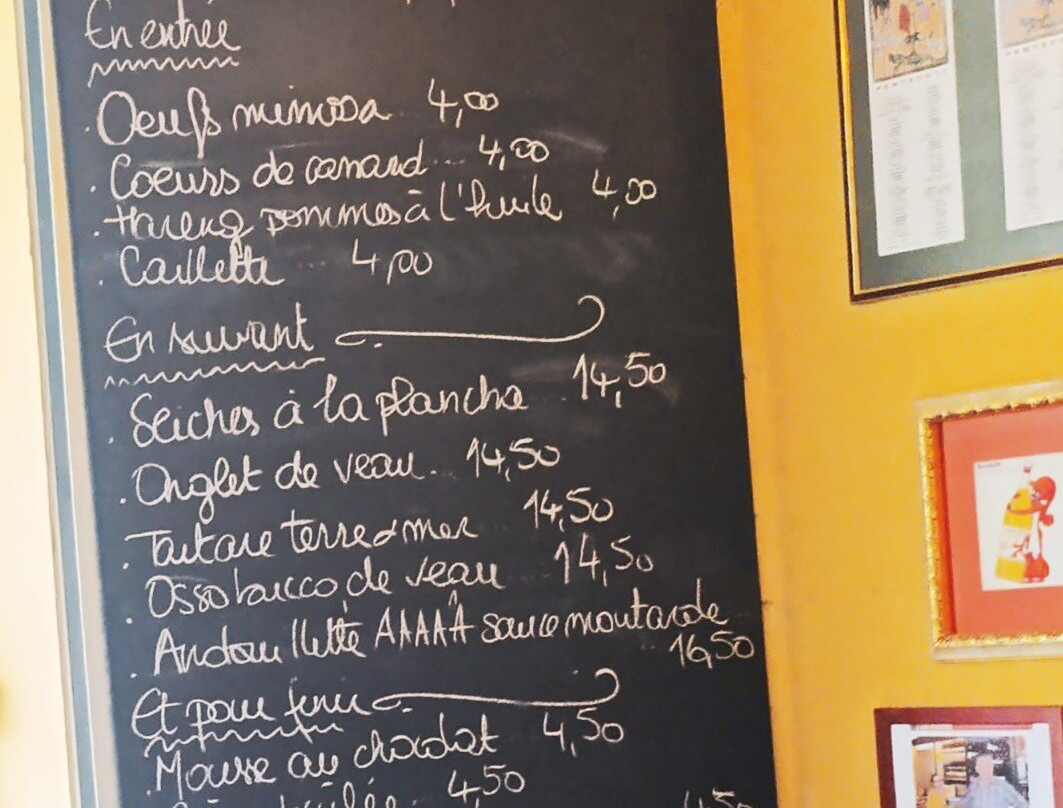 En entrée
. Oeufs mimosa 4,00
. Coeurs de canard... 4,00
. Hareng pommes à l'huile 4,00
. Caillette ... 4,00
En suivant
. Seiches à la plancha 14,50
. Onglet de veau.. 14,50
. Tartare terre & mer 14,50
. Ossobucco de veau 14,50
. Andouillette AAAAA sauce moutarde
16,50
Et pour finir
. Mousse au chocolat 4,50
brûlée 4,50 4,50